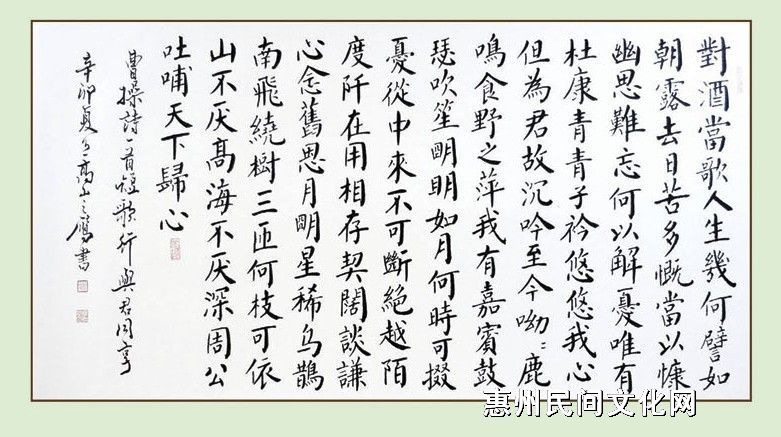 對酒當歌人生幾何譬如
朝露去日苦多慨當以慷
幽思難忘何以解憂唯有
杜康青青子衿悠悠我心
但為君故沉吟至今呦:鹿
鳴食野之萍我有嘉賓鼓
瑟吹笙明明如月何時可掇
憂從中來不可斷絕越陌
度阡在用相存契闊談謙
心念舊思月明星稀烏鵲
南飛繞樹三匝何枝可依
山不厌高海不厌深周公
吐哺天下歸心
曹操詩一首短歌行與君同享
辛卯夏高山之鷹書
惠州民间文化网